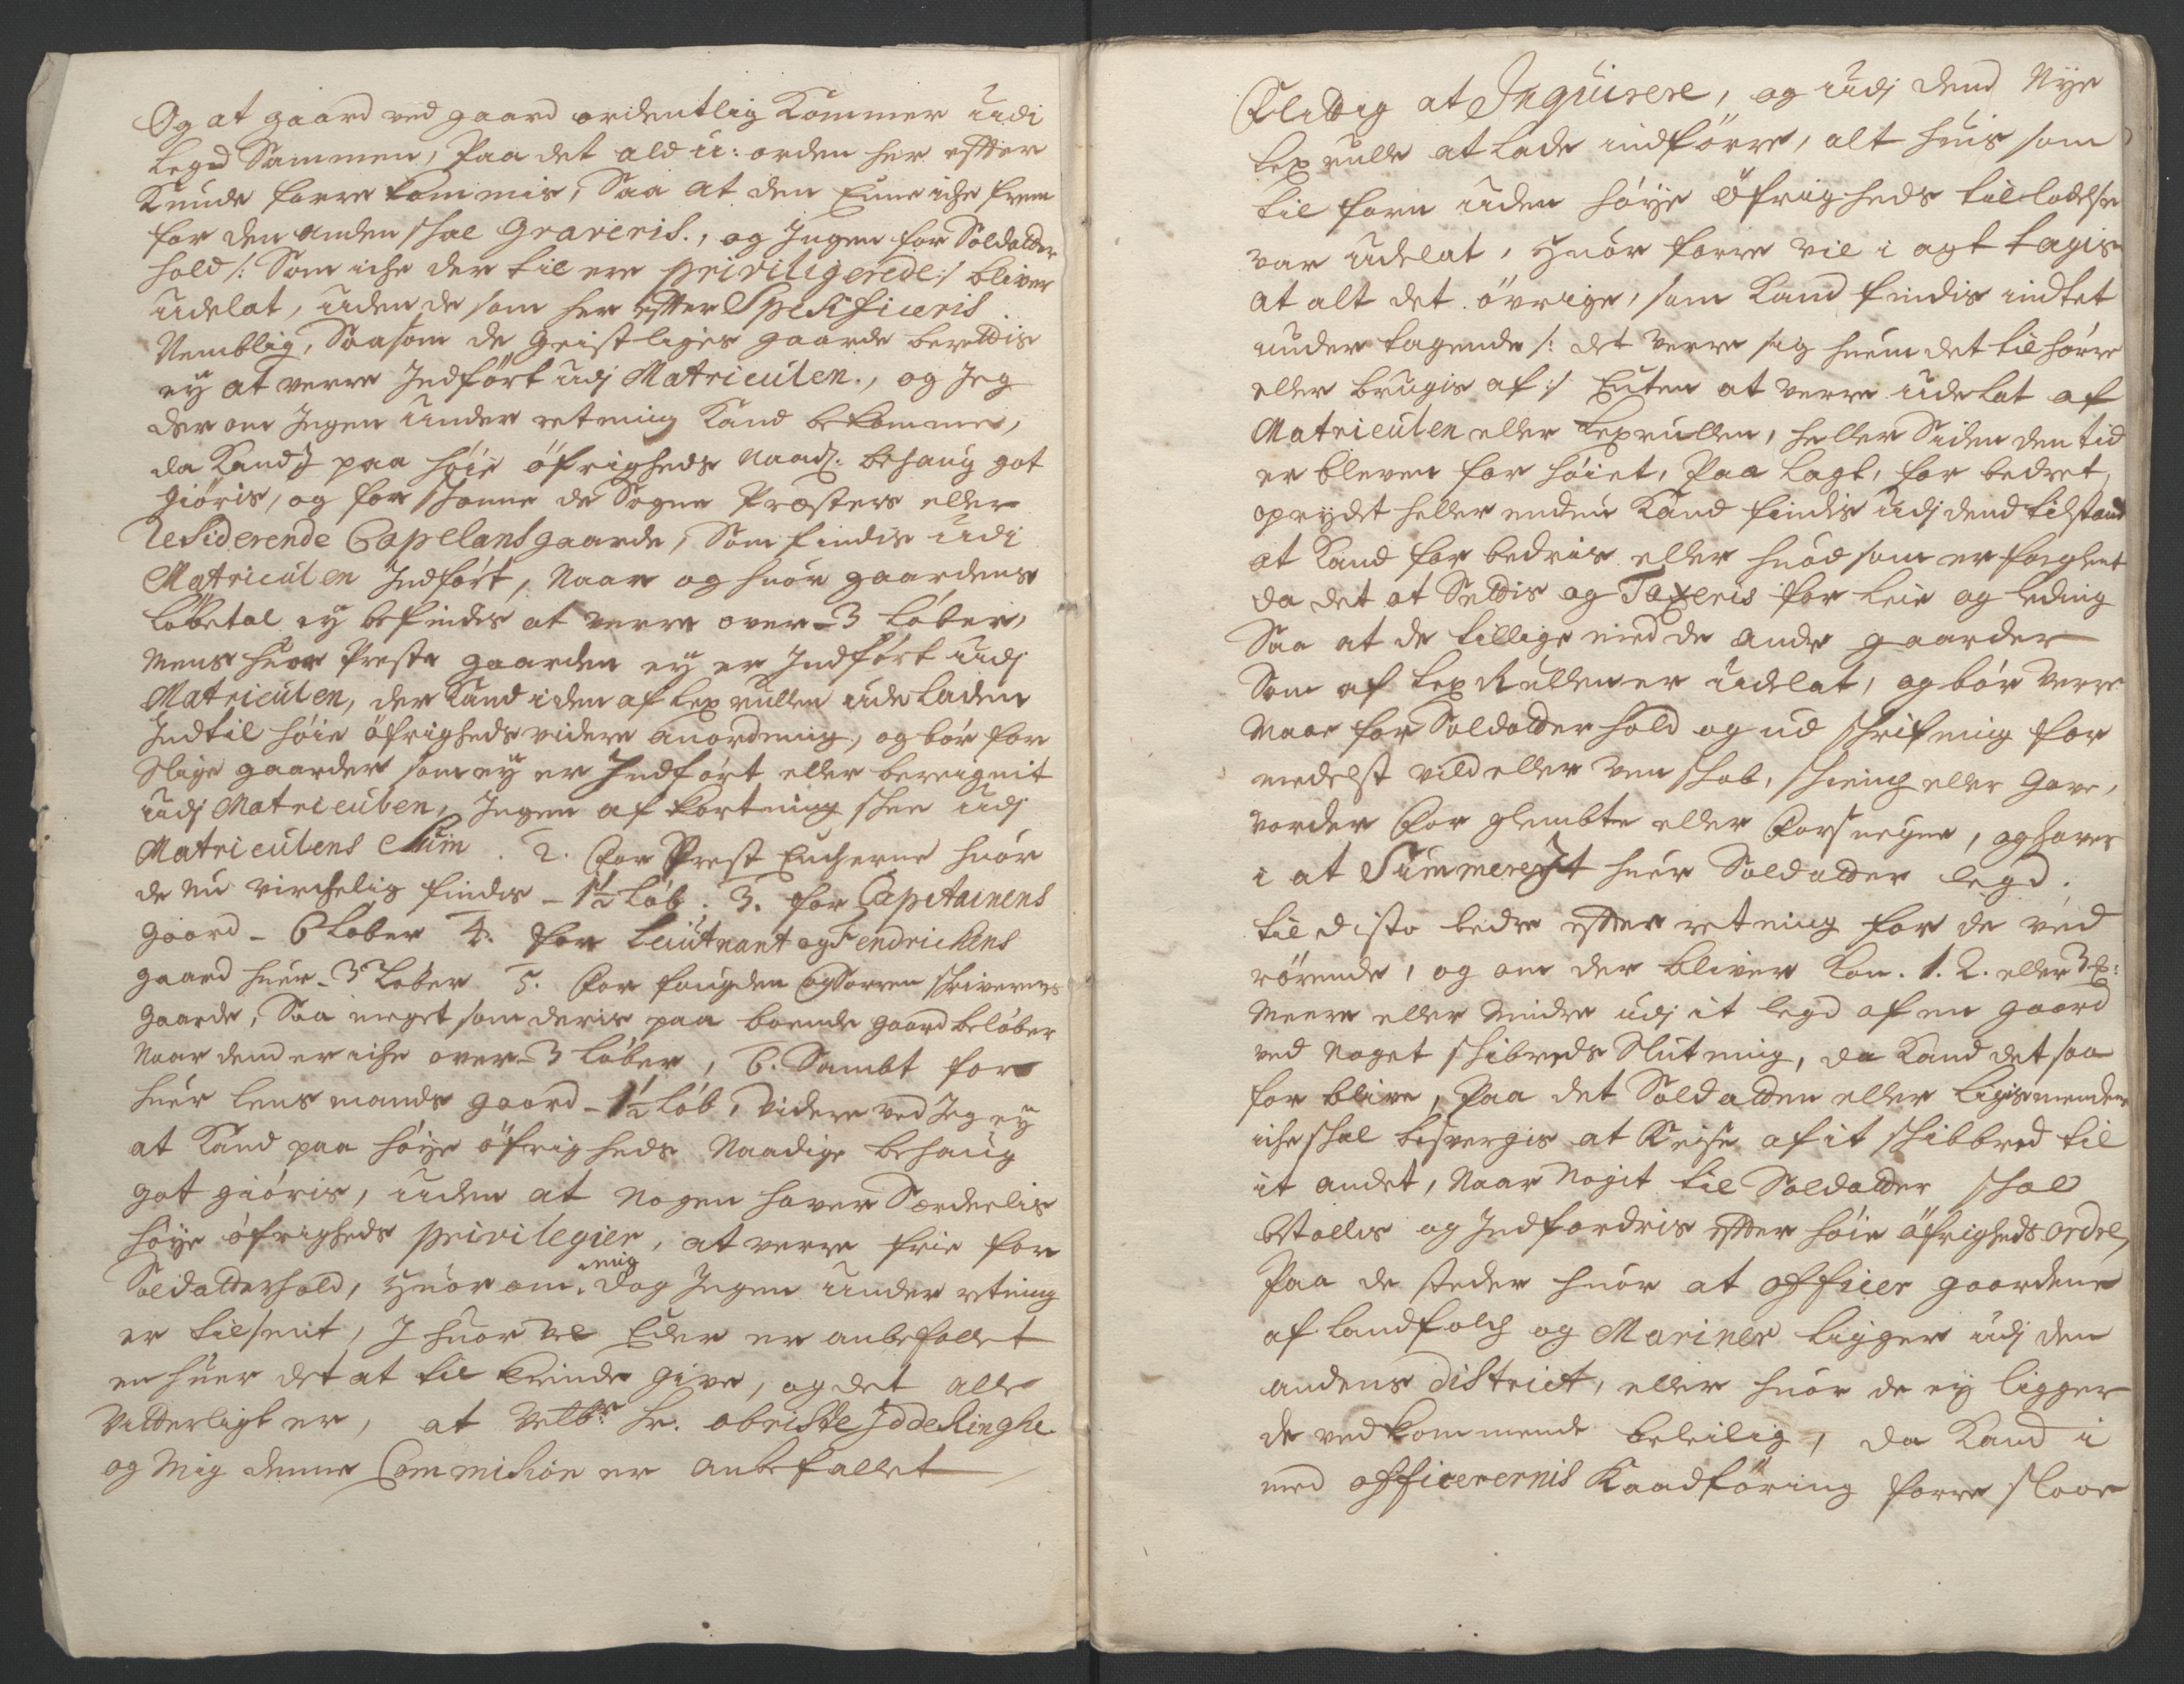 Og at gaard ved gaard ordentlig Kommer udi
Legd Sammen, Paa det ald u: orden her effter
Kunde forre kommis, Saa at den Eene iche frem
for den anden schal Graveris., og Ingen for Soldatter
hold /: Som iche der til ere priviligerede :/ bliver
udelat, uden de som her effter Speficiceris
Nemblig, Saasom de Geistliges gaarde berettis
ey at verre Indført udj Matriculen., og Jeg
der om Ingen Under retning Kand bekomme,
da Kand J paa høie øfrigheds Naad: behaug got
Giøris, og for schonne de Sogne Præsters eller
Residerende Capelans gaarde, Som findis udi
Matriculen Indført, Naar og huor gaardens
Løbetal ey befindes at verre over - 3 Løber,
Mens huor Preste gaarden ey er Indført udj
Matriculen, der Kand iden af Lex rullen ude laden
Indtil høie øfrigheds videre anordning, og bør for
Slige gaarder som ey er Indført eller bereignit
udj Matriculen, Ingen af kortning schee udj
Matriculens Sum. 2. For Prest Encherne huor
de Nu virchelig findes - 1½ Løb. 3. for Capitainens
gaard - 6 Løber 4. for Leutnant og Fendrichens
gaard huer - 3 Løber 5. For fougden og Sorren schriverens
Gaarde, Saa meget som deris paa boende gaard beløber
Naar dend er iche over - 3 Løber, 6. Sambt for
huer Lens mands gaard - 1½ Løb, Videre ved Jeg ey
at Kand paa høye øfrigheds Naadige behaug
got giøris, uden at Nogen haver Særdeelis
høye øfrigheds privilegier, at verre frie for
Soldatterhold, huor om mig dog Ingen Under retning
er tilsent, J huor vel Eder er anbefallet
en huer det at til kiende give, og det alle
Vitterligt er, at Velb:r Hr. obriste Jdde Ringhe
og Mig denne Commision er anbefallet
Flittig at Inquirere, og udj dend Nye
Lex rulle at lade indførre, alt huis som
til forn uden høye øfrigheds tilladelse
var udelat, Huor forre vil i agt tagis
at alt det øvrige, som Kand findis intet
under tagende /: det verre sig huem det tilhørre
eller brugis af :/ Enten at verre udelat af
Matriculen eller Lexrullen, heller Siden den tid
er bleven for høiet, Paa lagt, for bedret,
oprydet heller enduu Kand findis udj dend tilstand
at Kand for bedris eller huad som er forglemt
da det at Settis og Taxeris for Leie og leding
Saa at de tillige med de andre gaarder
Som af Lex Rullen er udelat, og bør verre
Naar for Soldatter hold og ud schrifning for
medelst vild eller ven schab, schienck eller Gave,
vorder For glembte eller Forsneyen, og haver
i at Summere It huer Soldatter legd.
til disto bedre effter retning for de ved
rørende, og om der bliver Kon. 1. 2. eller 3 #:
Meere eller Mindre udj it legd af en gaard
ved Noget schibreds Slutning, da Kand det saa
for blive, Paa det Soldatten eller Ligsmendene
iche schal besvergis at Reise af it schibbred til
it andet, Naar Nogit til Soldatter schal
bestellis og Indfordris effter høie øfrigheds ordre,
Paa de steder huor at officer gaardene
af Landfolch og Mariner ligger udj den
andens District, eller huor de ey ligger
de vedkommende beleilig, da Kand i
med officerernis Raadføring forre slaae